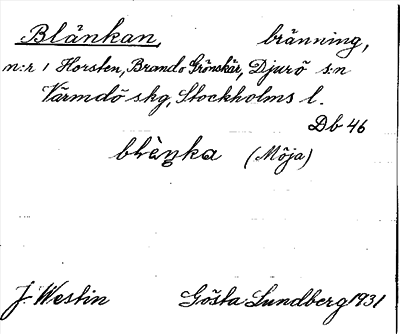 Blänkan, bränning,
n:r 1 Horsten, Brando Grönskär, Djurö s:n
Värmdö skg, Stockholms l.
Db 46
(Möja)
J Westin Gösta Lundberg 1931